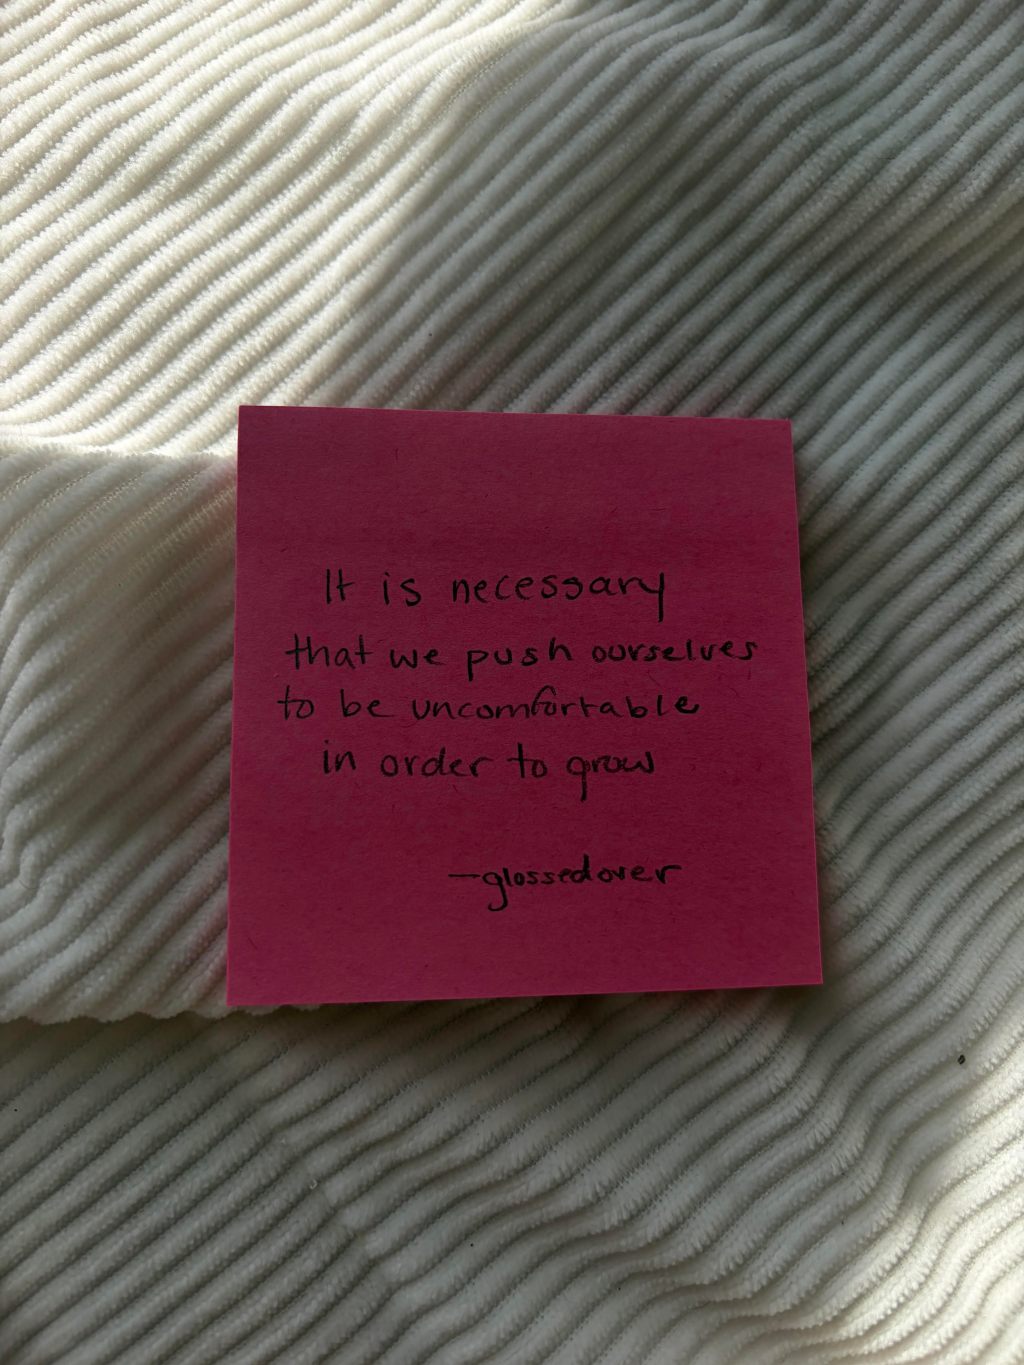 It is necessary
that we push ourselves
to be uncomfortable
in order to grow
—glossedover